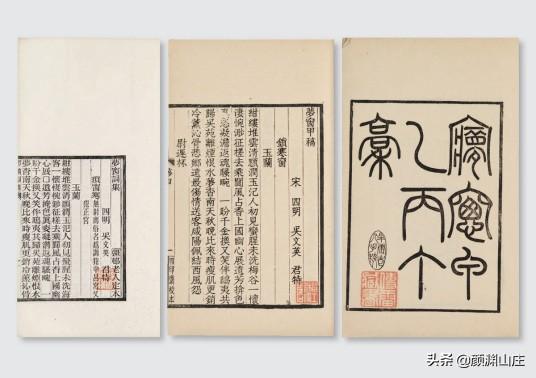 夢窗甲乙丙丁稾
夢窗甲稿
宋 四明 吳文英 君特
鎖寒窗
玉蘭
紺縷堆雲清顋潤玉汜人初見蠻腥未洗梅谷一懷
淒惋渺征槎去乘閬風占香上國幽心展遺芳掩色
真姿凝澹返魂騷畹 一盼千金換又笑伴鴟夷共
歸吳苑離煙恨水夢杳南天秋晚比來時瘦肌更銷
冷薰沁骨悲鄉遠最傷情送客咸陽佩結西風怨
尉遲杯
夢窗詞集
彊邨老人定本
四明 吳文英 君特
瑣窗寒 無射商俗名越調犯中呂宮又犯正宮
玉蘭
紺縷堆雲清顋潤玉汜人初見蠻腥未洗海
客一懷悽惋渺征槎去乘閬風占香上國幽
心展□遺芳掩色真姿凝澹返魂騷畹 一
盼千金換又笑伴鴟夷共歸吳苑離煙恨水
夢杳南天秋晚比來時瘦肌更銷冷薰沁骨
头条 @颜渊山庄